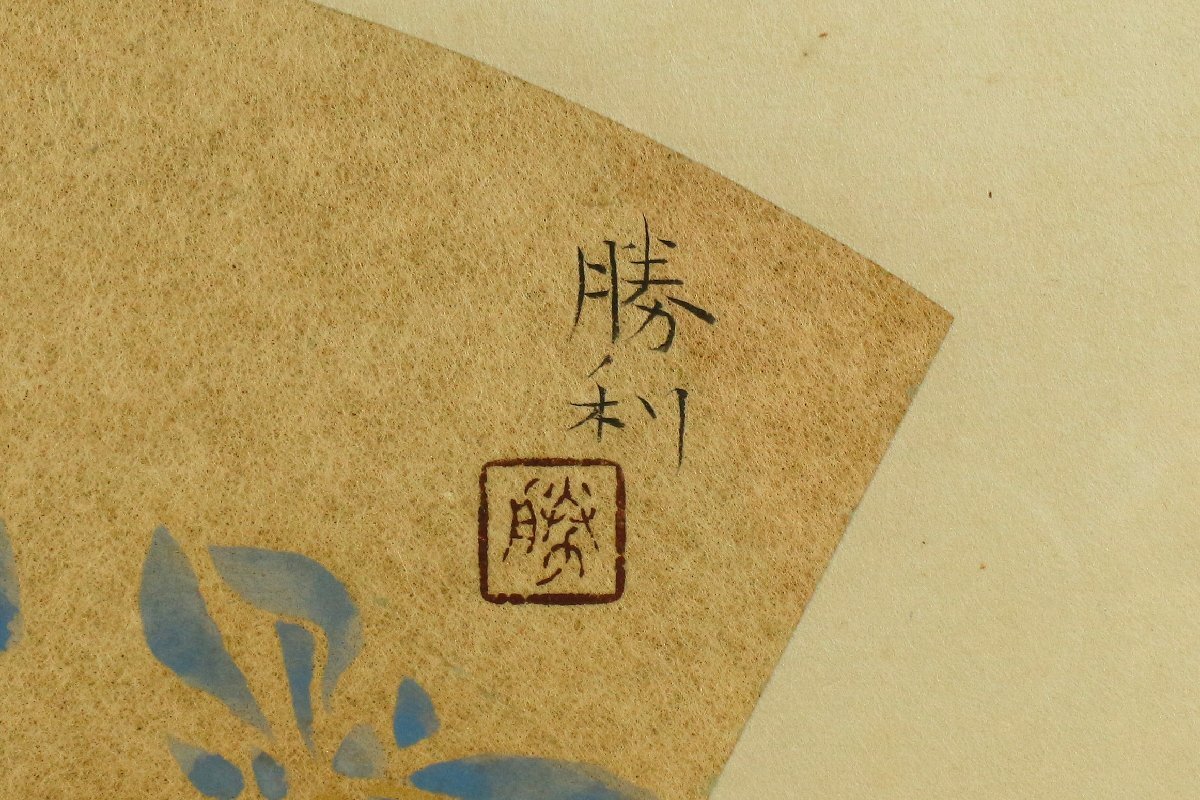 勝利
勝